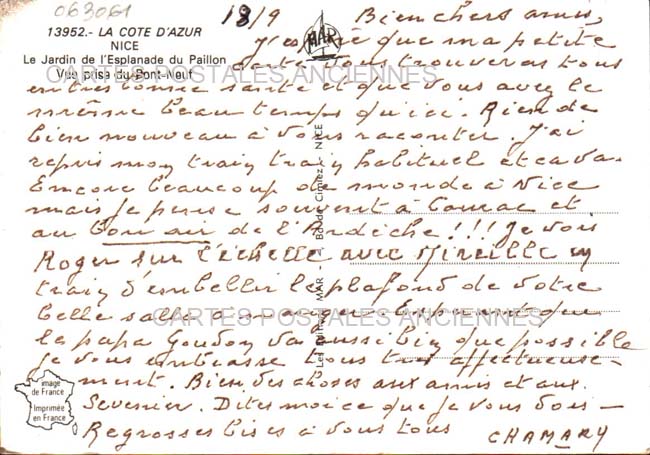 063061
13952.- LA COTE D'AZUR
NICE
Le Jardin de l'Esplanade du Paillon
Vue prise du Pont-Neuf
CARTES POSTALES ANCIENNES
MAR
18/9 Bien chers amis,
J'espère que ma petite
carte vous trouvera tous
en très bonne santé et que vous avez le
même beau temps qu'ici. Rien de
bien nouveau à vous raconter. J'ai
repris mon train train habituel et ca va.
Encore beaucoup de monde à Nice
mais je pense souvent à et
au bon air de l'Ardèche!!! Je vois
Roger sur l'échelle avec Mireille en
train d'embellir le plafond de votre
belle salle à manger. Espérant que
le papa Goudon va aussi bien que possible
je vous embrasse tous très affectueuse-
ment. Bien des choses aux amis et aux
. Dites moi ce que je vous dois -
Regrosses bises à vous tous
CHAMARY
CARTES POSTALES ANCIENNES
Les Editions MAR - Bd de Cimiez - NICE
image
de France
Imprimée
en France